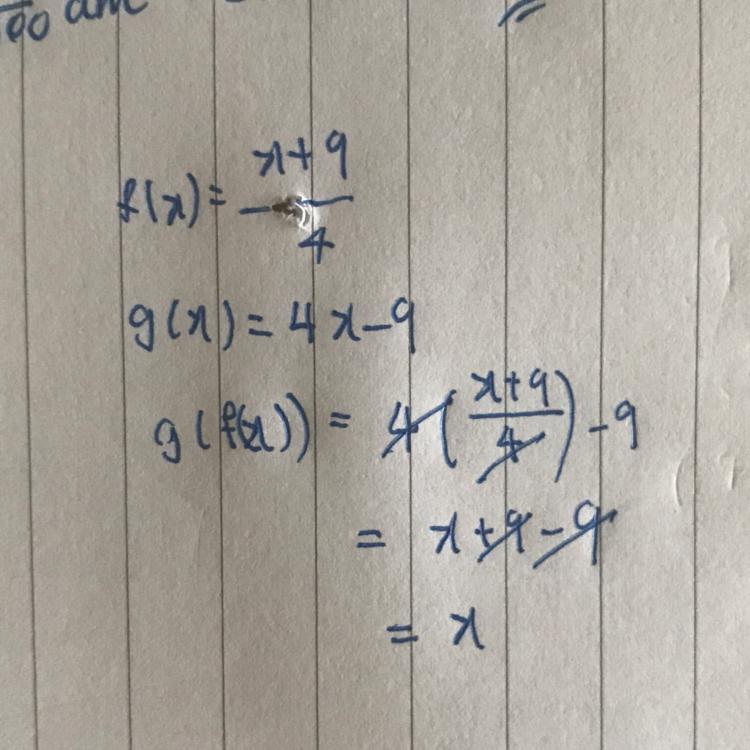 f(x) = x+9/4
g(x) = 4x-9
g(f(x)) = 4(x+9/4)-9
= x+9-9
= x